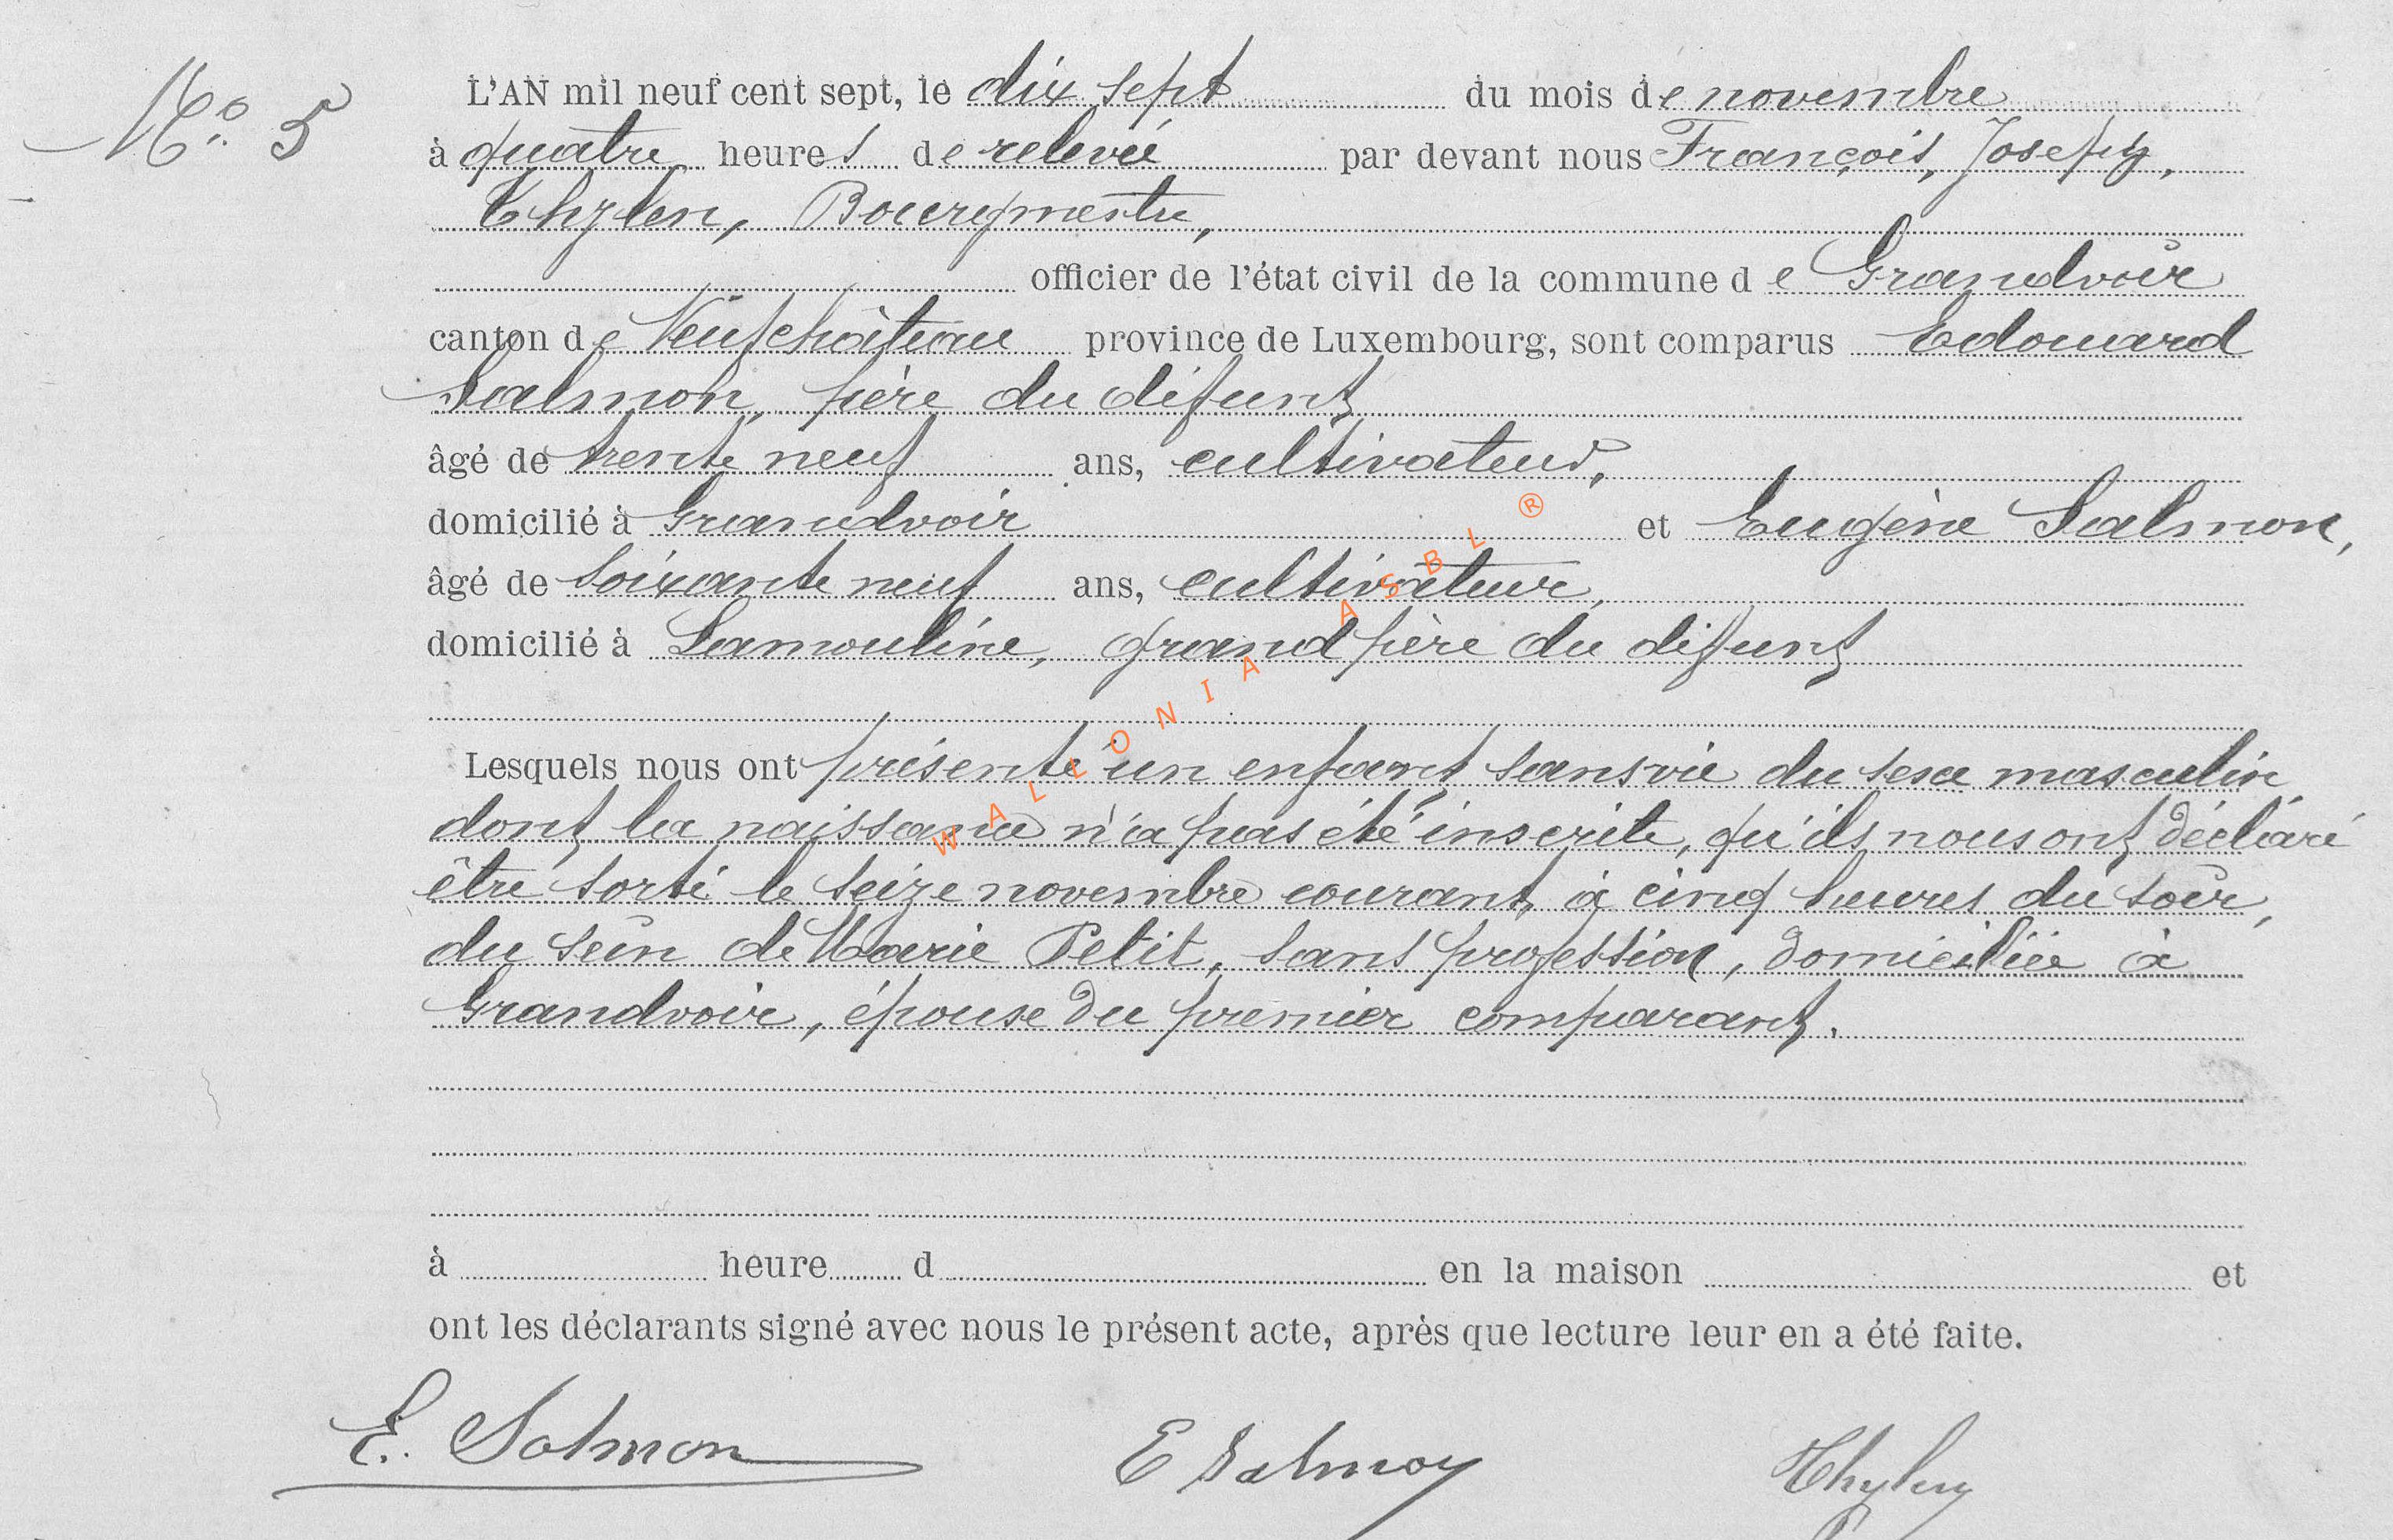 N° 5
L'AN mil neuf cent sept, le dix sept du mois de novembre
à quatre heures de relevée par devant nous François, Joseph,
Thylen, Bourgmestre,
officier de l'état civil de la commune de Grandvoir
canton de Neufchâteau province de Luxembourg, sont comparus Edouard
Salmon, père du défunt
âgé de trente neuf ans, cultivateur,
domicilié à Grandvoir et Eugène Salmon,
âgé de soixante neuf ans, cultivateur,
domicilié à Lamouline, grand père du défunt
Lesquels nous ont présenté un enfant sans vie du sexe masculin
dont la naissance n'a pas été inscrite, qu'ils nous ont déclaré
être sorti le seize novembre courant, à cinq heures du soir,
du sein de Marie Petit, sans profession, domiciliée à
Grandvoir, épouse du premier comparant.
à heure d en la maison et
ont les déclarants signé avec nous le présent acte, après que lecture leur en a été faite.
E. Salmon E Salmon Thylen
WALLONIA ASBL ®